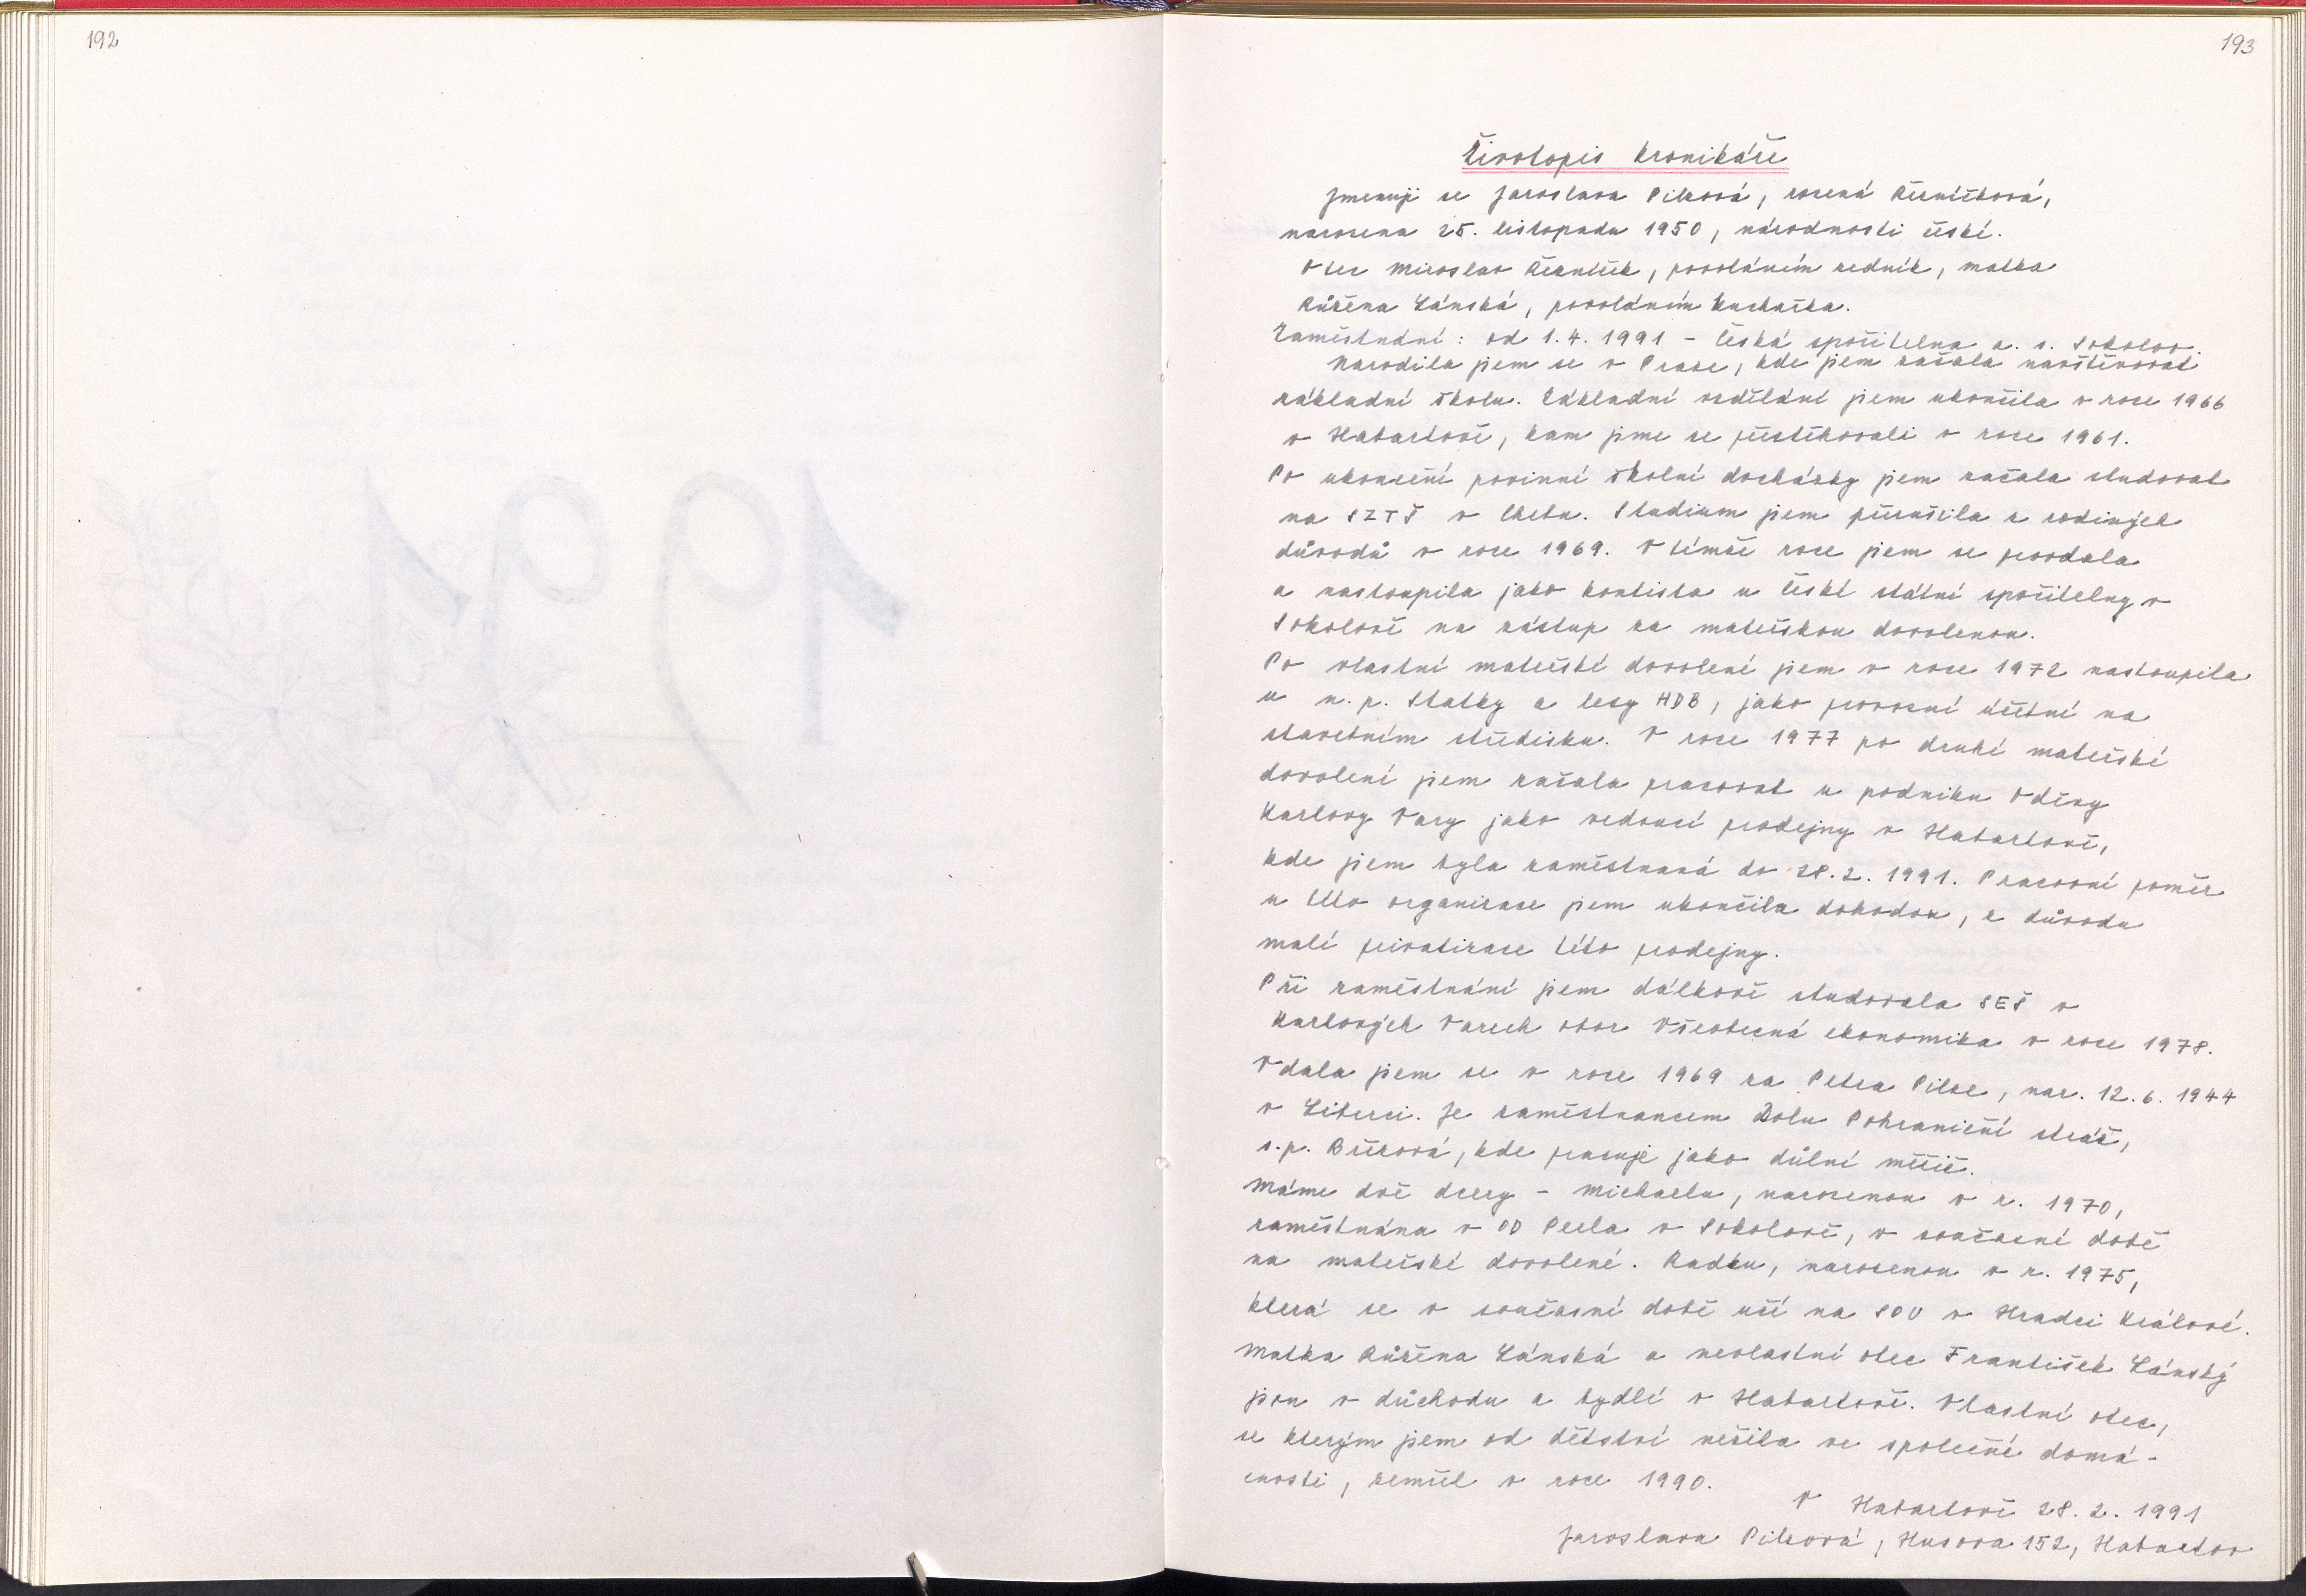 192
193
Životopis kronikáře
Jmenuji se Jaroslava Pilzová, rozená Řezníčková,
narozena 25. listopadu 1950, národnosti české.
Otec Miroslav Řezníček, povoláním zedník, matka
Růžena Lánská, povoláním kuchařka.
Zaměstnání: od 1.4.1991 - Česká spořitelna a.s. Sokolov.
Narodila jsem se v Praze, kde jsem začala navštěvovat
základní školu. Základní vzdělání jsem ukončila v roce 1966
v Habartově, kam jsme se přestěhovali v roce 1961.
Po ukončení povinné školní docházky jsem začala studovat
na SZTŠ v Chebu. Studium jsem přerušila z rodiných
důvodů v roce 1969. V témže roce jsem se provdala
a nastoupila jako kontista u České státní spořitelny v
Sokolově na zástup za mateřskou dovolenou.
Po vlastní mateřské dovolené jsem v roce 1972 nastoupila
u n.p. Statky a lesy HDB, jako provozní účetní na
stavebním středisku. V roce 1977 po druhé mateřské
dovolené jsem začala pracovat u podniku Oděvy
Karlovy Vary jako vedoucí prodejny v Habartově,
kde jsem byla zaměstnaná do 28.2.1991. Pracovní poměr
u této organizace jsem ukončila dohodou, z důvodu
malé privatizace této prodejny.
Při zaměstnání jsem dálkově studovala SEŠ v
Karlových Varech obor Všeobecná ekonomika v roce 1978.
Vdala jsem se v roce 1969 za Petra Pilze, nar. 12.6.1944
v Liberci. Je zaměstnancem Dolu Pohraniční stráž,
s.p. Březová, kde pracuje jako důlní měřič.
Máme dvě dcery - Michaelu, narozenou v r. 1970,
zaměstnána v OD Perla v Sokolově, v současné době
na mateřské dovolené. Radku, narozenou v r. 1975,
která se v současné době učí na SOU v Hradci Králové.
Matka Růžena Lánská a nevlastní otec František Lánský
jsou v důchodu a bydlí v Habartově. Vlastní otec,
se kterým jsem od dětství nežila ve společné domá-
cnosti, zemřel v roce 1990.
V Habartově 28.2.1991
Jaroslava Pilzová, Husova 152, Habartov